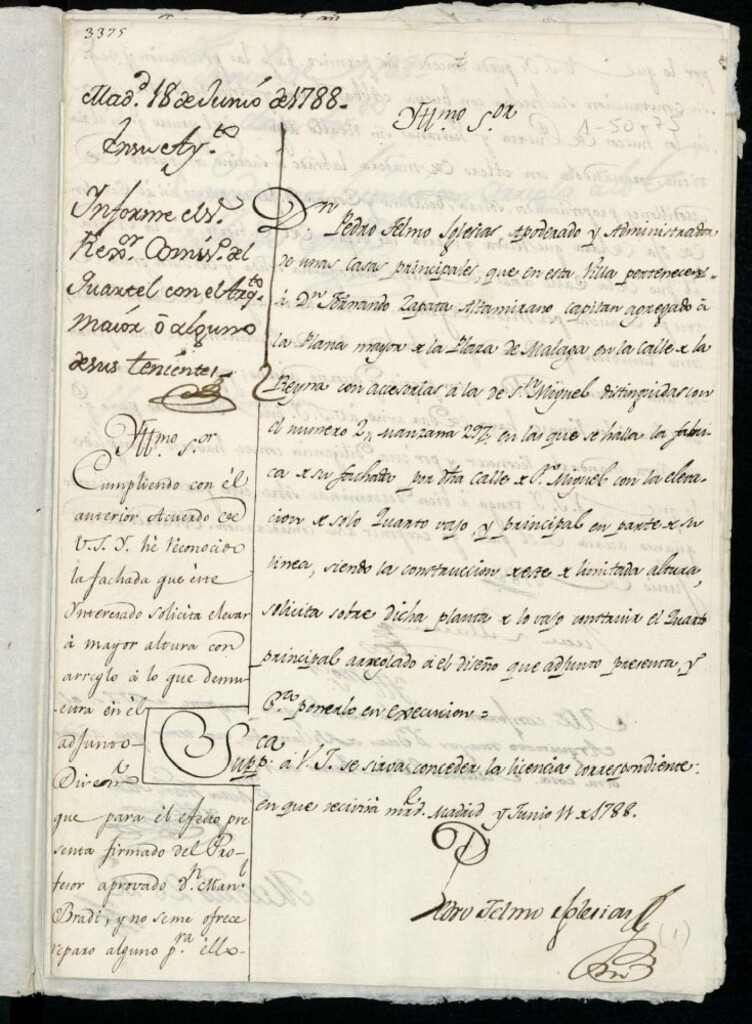 3375
Mad.d 18 de Junio de 1788.
En su Ay.to
Informe el S.r
Rex.or Comis.o del
Quartel con el Arq.to
maior ó alguno
de sus tenientes
Yll.mo S.or
Cumpliendo con él
anterior Acuerdo de
V.S.Y. hé reconocido
la fachada que éste
Ynteresado solicita elevar
à mayor altura con
arreglo à lo que demu-
estra en él
adjunto
Diseñ.o
que para él efecto pre
senta firmado del Pro-
fesor aprovado d.n Man.l
Bradi, y no se me ofrece
reparo alguno p.ra éllo-
Yll.mo S.or
1-50-73
D.n Pedro Telmo Iglesias Apoderado y Administrador
de unas casas principales, que en esta Villa pertenecen
à D.n Fernando Zapata Altamirano capitan agregado à
la Plana mayor de la Plaza de Malaga en la calle de la
Reyna con accesorias á la de S.n Miguel distinguidas con
el numero 2,, manzana 297, en las que se halla la fabri-
ca de su fachada por dha calle de S.n Miguel con la eleva-
cion de solo Quarto vajo, y principal en parte de su
linea, siendo la construccion de este de limitada altura,
solicita sobre dicha planta de lo vajo construir el Quarto
principal arreglado á el diseño que adjunto presenta, y
P.a ponerlo en execucion=
Supp.ca á V.I. se sirva conceder la licencia correspondiente:
en que recivirá mrd. Madrid y Junio 11 de 1788.
Pedro Telmo Iglesias
(1)